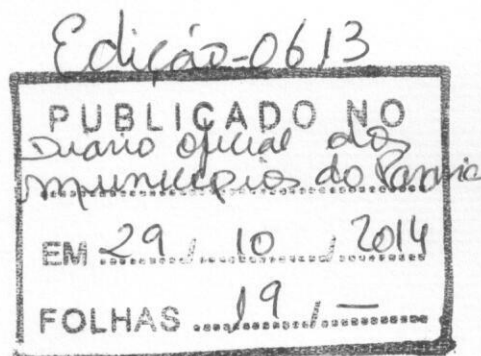 Edição-0613
PUBLICADO NO
Diário oficial dos
municipios do Paraná
EM 29 / 10 / 2014
FOLHAS 19 / —